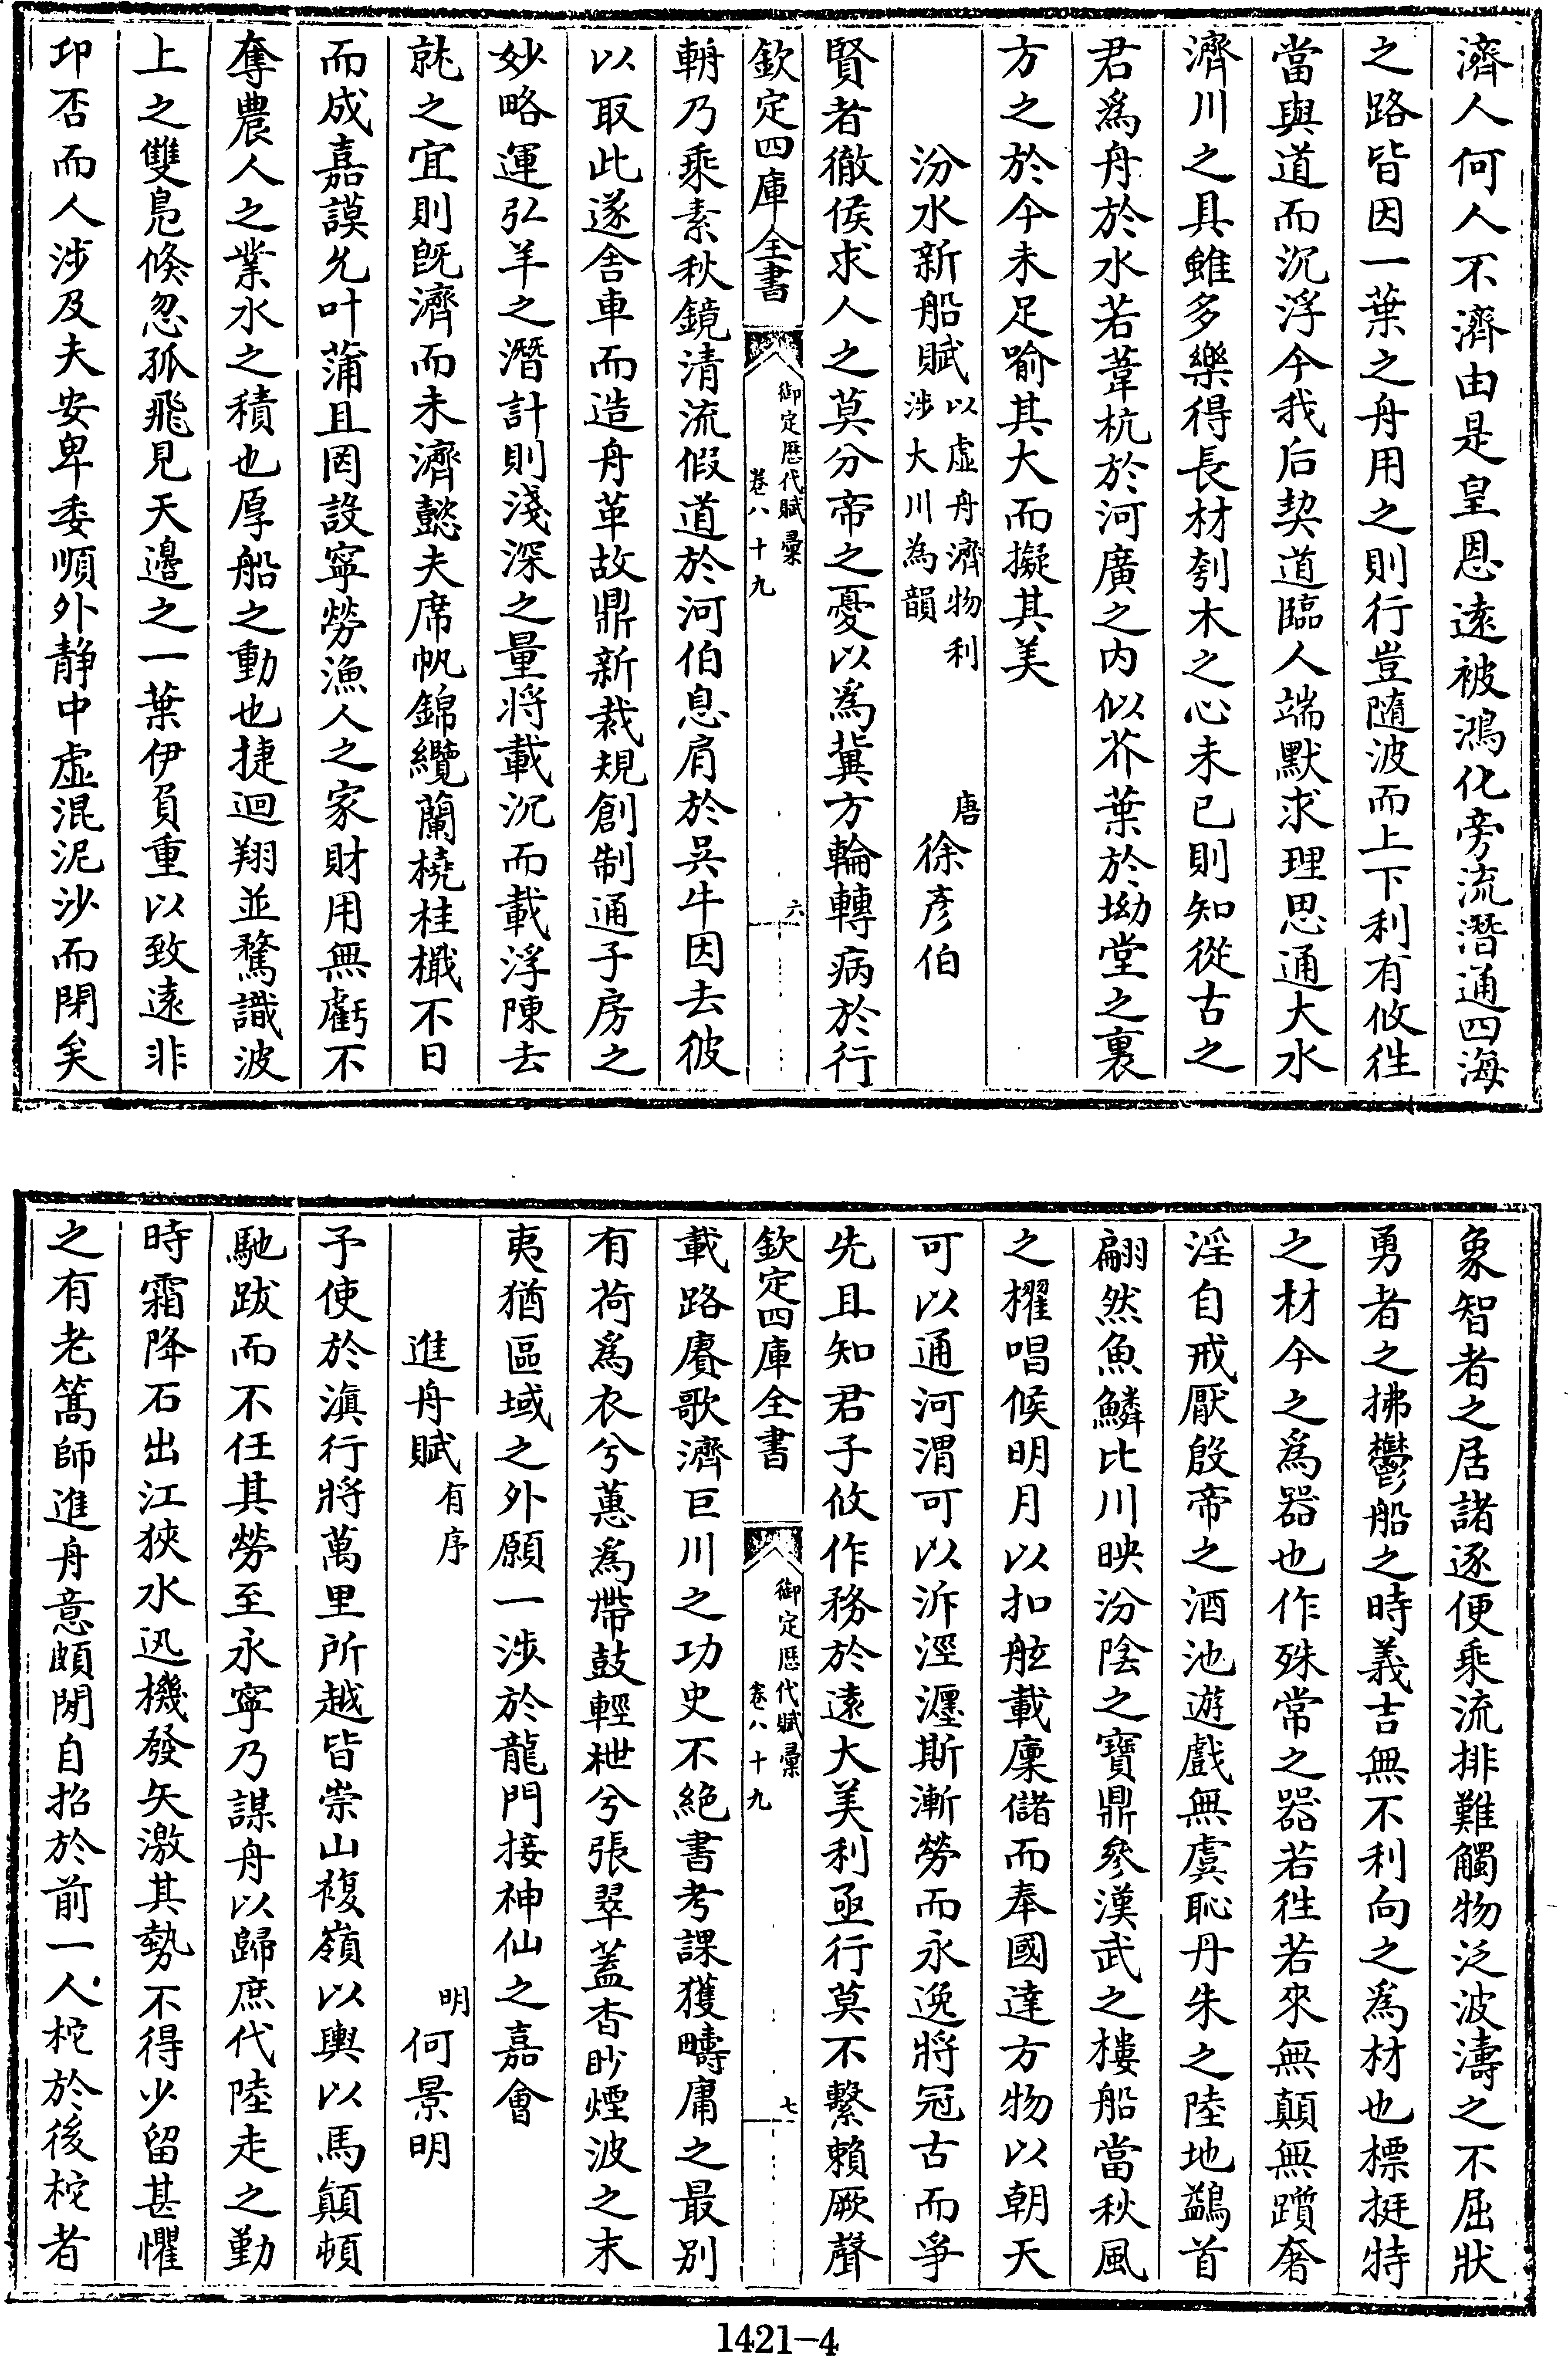 濟人何人不濟由是皇恩遠被鴻化旁流潛通四海
之路皆因一葉之舟用之則行豈隨波而上下利有攸往
當與道而沉浮今我后契道臨人端默求理思通大水
濟川之具雖多樂得長材刳木之心未已則知從古之
君爲舟於水若葦杭於河廣之内似芥葉於坳堂之裏
方之於今未足喻其大而擬其美
汾水新船賦以虛舟濟物利涉大川為韻 唐徐彥伯
賢者徹侯求人之莫分帝之憂以爲冀方輪轉病於行
欽定四庫全書 御定歷代賦彙 卷八十九 六
輈乃乘素秋鏡清流假道於河伯息肩於吳牛因去彼
以取此遂舍車而造舟革故鼎新裁規創制通子房之
妙略運弘羊之潛計則淺深之量將載沉而載浮陳去
就之宜則旣濟而未濟懿夫席帆錦纜蘭橈桂檝不日
而成嘉謨允叶蒲且罔設寧勞漁人之家財用無虧不
奪農人之業水之積也厚船之動也捷迴翔並騖識波
上之雙鳧倏忽孤飛見天邉之一葉伊負重以致遠非
卬否而人涉及夫安卑委順外静中虛混泥沙而閉矣
象智者之居諸逐便乘流排難觸物泛波濤之不屈狀
勇者之拂鬱船之時義吉無不利向之為材也標挺特
之材今之爲器也作殊常之器若往若來無顛無躓奢
淫自戒厭殷帝之酒池遊戲無虞恥丹朱之陸地鷁首
翩然魚鱗比川映汾陰之寶鼎參漢武之樓船當秋風
之櫂唱候明月以扣舷載廪儲而奉國達方物以朝天
可以通河渭可以泝涇瀍斯漸勞而永逸將冠古而爭
先且知君子攸作務於遠大美利亟行莫不繫賴厥聲
欽定四庫全書 御定歷代賦彙 卷八十九 七
載路賡歌濟巨川之功史不絶書考課獲疇庸之最别
有荷爲衣兮蕙爲帶鼓輕枻兮張翠蓋杳眇煙波之末
夷猶區域之外願一涉於龍門接神仙之嘉會
進舟賦有序 明何景明
予使於滇行將萬里所越皆崇山複嶺以輿以馬顛頓
馳跋而不任其勞至永寧乃謀舟以歸庶代陸走之勤
時霜降石出江狹水迅機發矢激其勢不得少留甚懼
之有老篙師進舟意頗閒自招於前一人柁於後柁者
1421—4